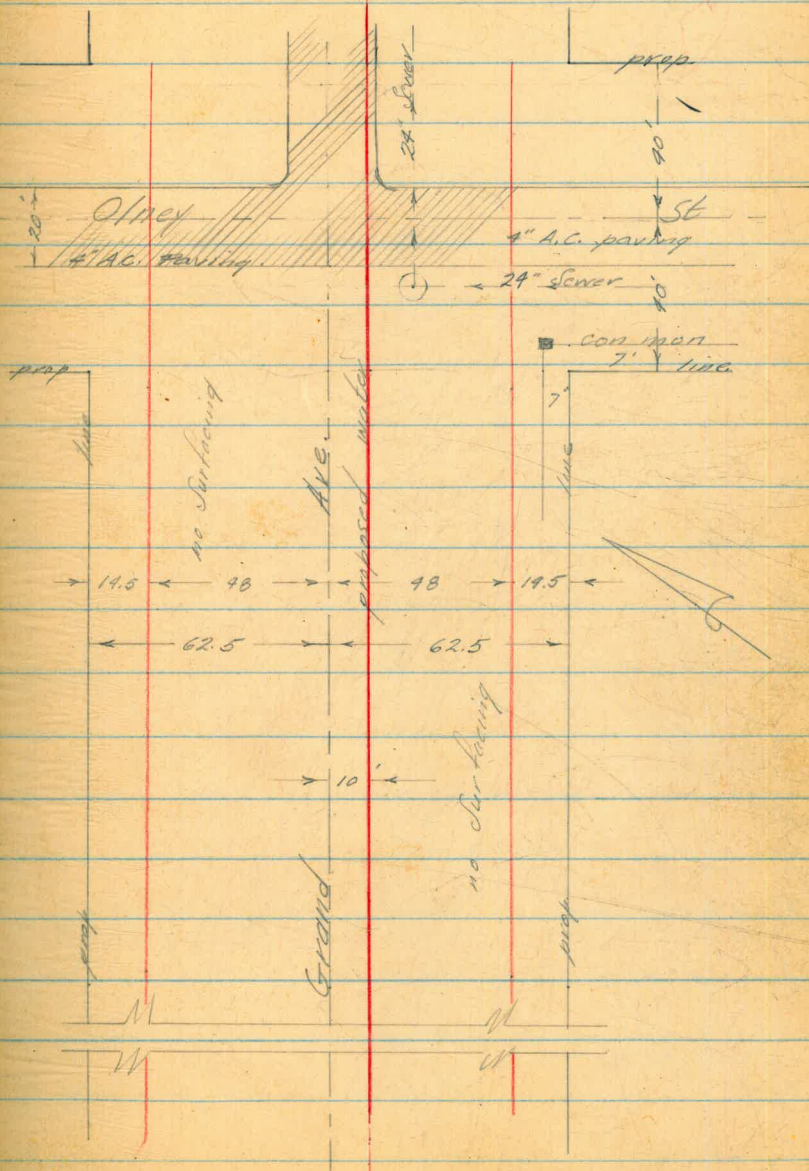 prop.
24" Sewer
40'
20'
Olney St
4" A.C. paving
4" A.C. Paving
24" Sewer
40'
common
7' line
prop
7'
line
line
no Surfacing
Grand Ave.
proposed water
14.5 48 48 14.5
62.5 62.5
no Surfacing
10'
prop
prop